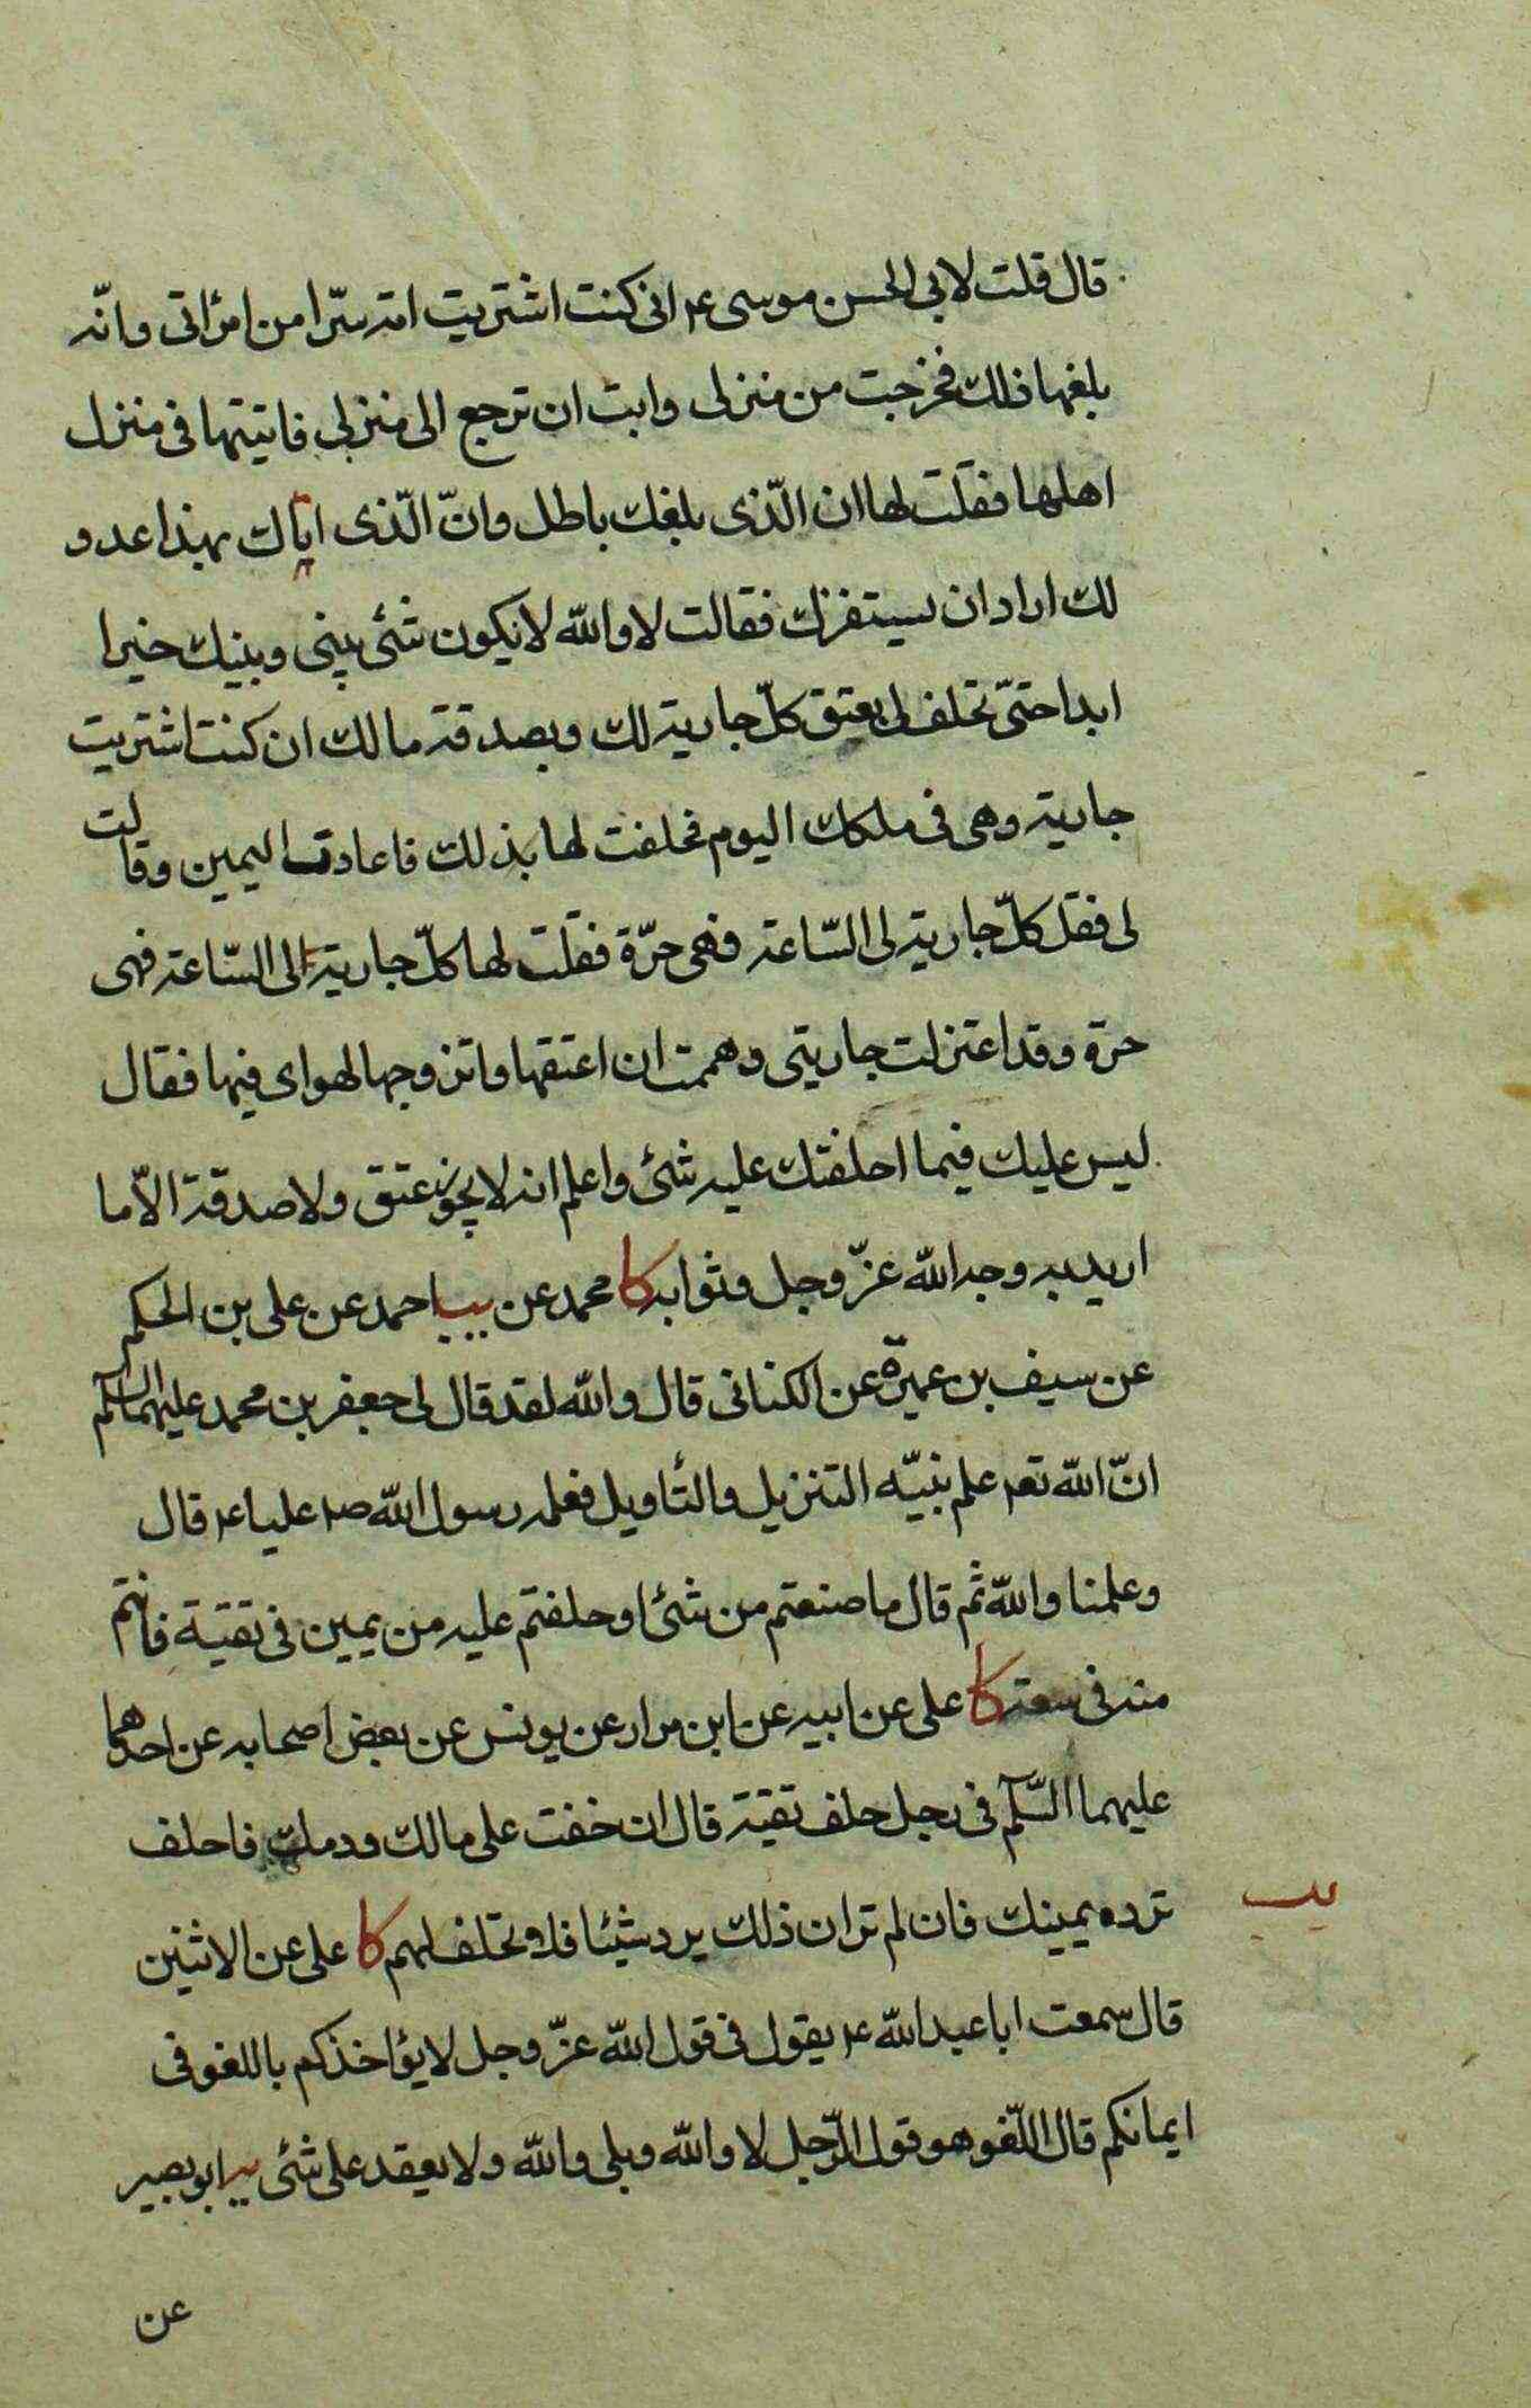 قال قلت لابي الحسن موسى ع انى كنت اشتريت امة سرّا من امرأتى وانّه
بلغها ذلك فخرجت من منزلى وابت ان ترجع الى منزلى فاتيتها فى منزل
اهلها فقلت لها ان الّذى بلغك باطل وانّ الّذى اياك بهذا عدو
لك اراد ان يستفزك فقالت لا والله لا يكون شئ بينى وبينك خيرا
ابدا حتىّ تحلف لى بعتق كلّ جارية لك وبصدقة مالك ان كنت اشتريت
جارية وهى فى ملكك اليوم فحلفت لها بذلك فاعادت اليمين وقالت
لى فقل كلّ جارية لى السّاعة فهى حرّة فقلت لها كلّ جارية لى السّاعة فهى
حرة وقد اعتزلت جاريتى وهممت ان اعتقها واتزوجها لهواى فيها فقال
ليس عليك فيما احلفتك عليه شئ واعلم انه لا يجوز عتق ولا صدقة الاّ ما
اريد به وجه الله عزّ وجل وثوابه كا محمد عن يب احمد عن على بن الحكم
عن سيف بن عميرة عن الكنانى قال والله لقد قال لى جعفر بن محمد عليهما السلم
انّ الله تعم علم نبيّه التنزيل والتأويل فعلمه رسول الله صم عليا ع قال
وعلمنا والله ثم قال ما صنعتم من شئ او حلفتم عليه من يمين فى تقية فانتم
منه فى سعة كا على عن ابيه عن ابن مرار عن يونس عن بعض اصحابه عن احدهما
عليهما السّلم فى رجل حلف تقية قال ان خفت على مالك ودمك فاحلف
ترده بيمينك فان لم تر ان ذلك يرد شيئا فلا وتحلف لهم كا على عن الاثنين
يب
قال سمعت ابا عبد الله ع يقول فى قول الله عزّ وجل لا يؤاخذكم باللغو فى
ايمانكم قال اللّغو هو قول الرّجل لا والله وبلى والله ولا يعقد على شئ يه ابو بصير
عن